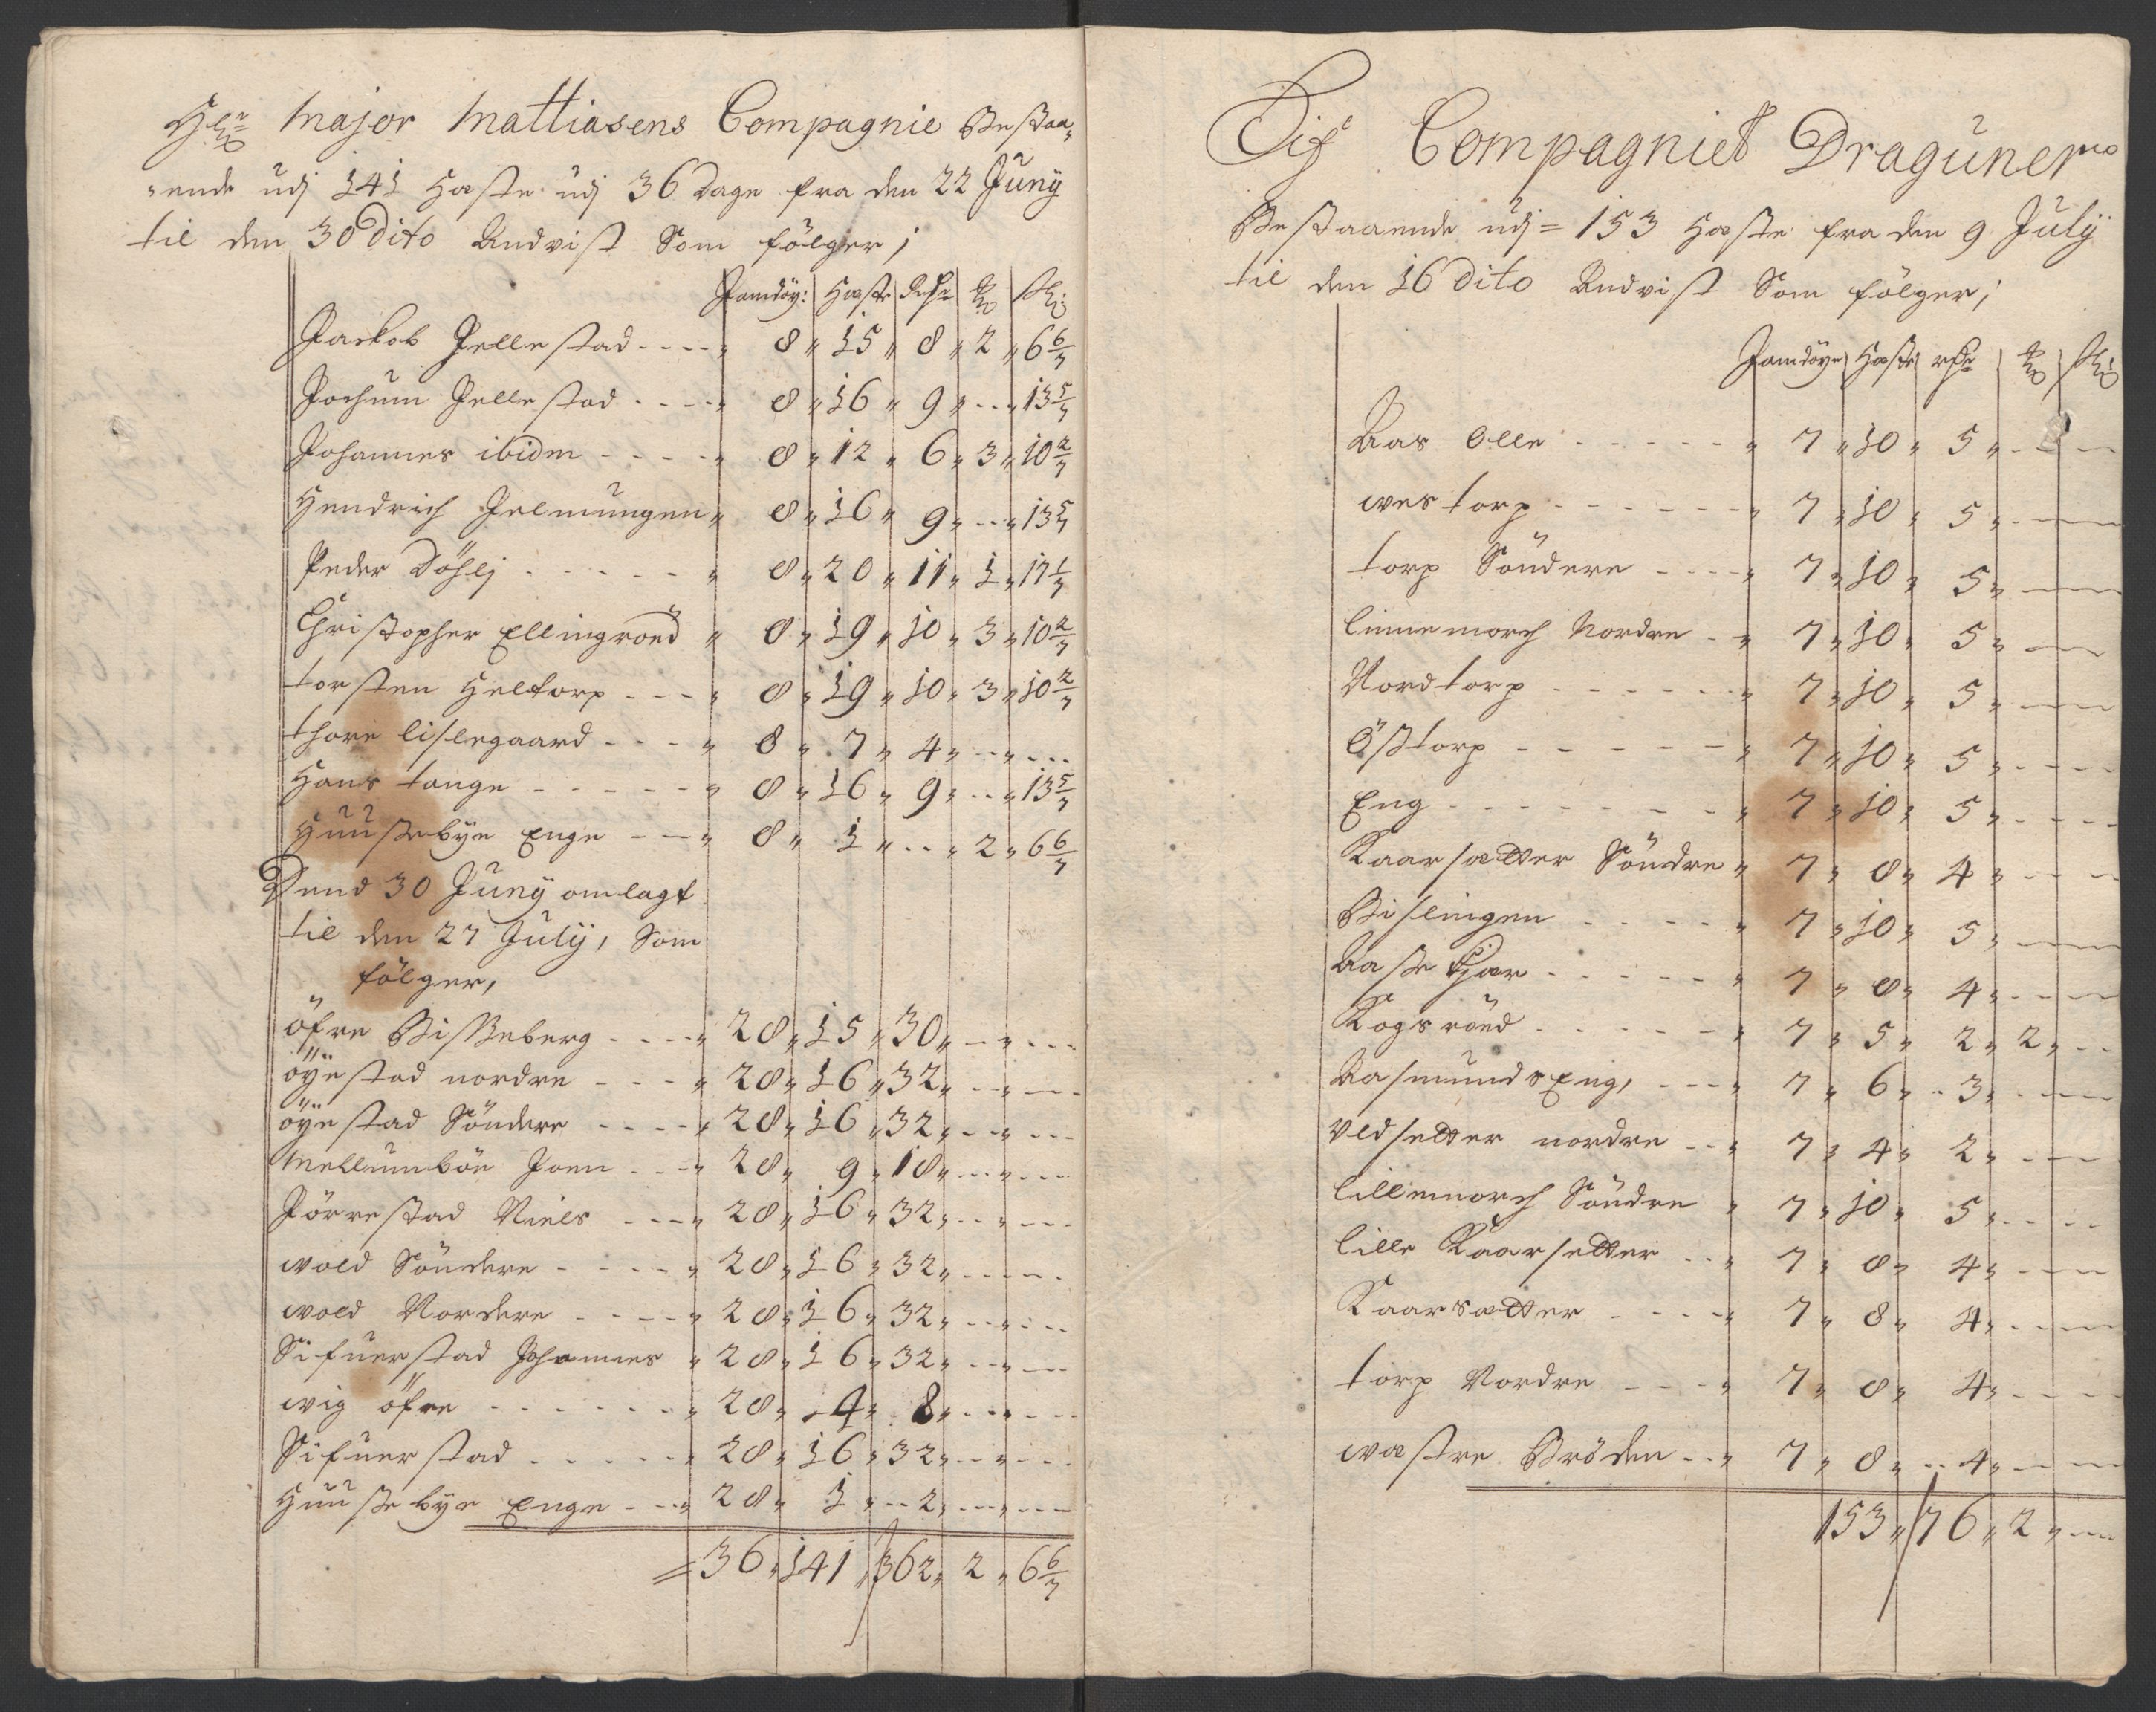 Hr Major Mattiasens Compagnie Bestaa-
-ende udj 141 Heste udj 36 Dage fra den 22 Juny
til den 30 Dito Andvist Som fölger;
Hæste Rdr
Jackob Jellestad - - - - 8 " 15 " 8 " 2 " 6 6/7
Jochum Jellestad - - - - 8 " 16 " 9 " - - " 13 5/7
Johannes ibidm - - - - 8 " 12 " 6 " 3 " 10 2/7
Hendrich Jelmungen " 8 " 16 " 9 " - - " 13 5/7
Peder Döhlj - - - - - " 8 " 20 " 11 " 1 " 17 1/7
Christopher Ellingroed " 8 " 19 " 10 " 3 " 10 2/7
torsten Heltorp - - - " 8 " 19 " 10 " 3 " 10 2/7
thore lislegaard - - - " 8 " 7 " 4 " - - " - - -
Hans tange - - - - - " 8 " 16 " 9 " - - " 13 5/7
Huusebÿe Enge - - - " 8 " 1 " - - " 2 " 6 6/7
Dend 30 Juny omlagt
til den 27 Julÿ, Som
fölger,
öfre Bisseberg - - - - " 28 " 15 " 30 " - - " - - -
öÿestad nordre - - - " 28 " 16 " 32 " - - " - - -
öÿestad Söndere - - - - " 28 " 16 " 32 " - - " - - -
Mellumböe Joen - - - " 28 " 9 " 18 " - - " - - -
Jörrestad Niels - - - " 28 " 16 " 32 " - - " - - -
wold Söndere - - - - " 28 " 16 " 32 " - - - - -
wold Nordere - - - - " 28 " 16 " 32 " - - " - - -
Sifuerstad Johannes " 28 " 16 " 32 " - - " - - -
wig öfre - - - - - - " 28 " 4 " 8 " - - " - - -
Sifuerstad - - - - - " 28 " 16 " 32 " - - " - - -
Huusebÿe Enge - - - " 28 " 1 " - - 2 " - - " - - -
= 36 " 141 " 362 " 2 " 6 6/7
Lif Compagniet Draguner
Bestaaende udj = 153 Heste fra den 9 Julÿ
til den 16 Dito Andvist Som fölger;
Hæste
Aas Olle - - - - - " 7 " 10 " 5 " - - -
westorp - - - - - - " 7 " 10 " 5 " - - -
torp Söndere - - - - " 7 " 10 " 5 " - - -
linnemorch Nordre - " 7 " 10 " 5 " - - -
Nordtorp - - - - - - " 7 " 10 " 5 " - - -
Östorp - - - - - - " 7 " 10 " 5 " - - - -
Eng - - - - - - - - " 7 " 10 " 5 " - - - -
Kaarsætter Söndre " 7 " 8 " 4 " - - -
Bislingen - - - - - " 7 " 10 " 5 " - - -
Aasekjær - - - - - " 7 " 8 " 4 " - - -
Kogsröed - - - - - " 7 " 5 " 2 " 2 " - -
AasmundsEng, - - - " 7 " 6 " - 3 " - - -
Vedsetter nordre - - " 7 " 4 " 2 " - - -
lillemorch Söndre " 7 " 10 " 5 " - - - -
lille Kaarsetter - - " 7 " 8 " 4 " - - -
Kaarsætter - - - - " 7 " 8 " 4 " - - -
torp Nordre - - - " 7 " 8 " 4 " - - - -
wæstre Bröden - - " 7 " 8 " - - 4 " - - -
153 " 76 " 2 " - -